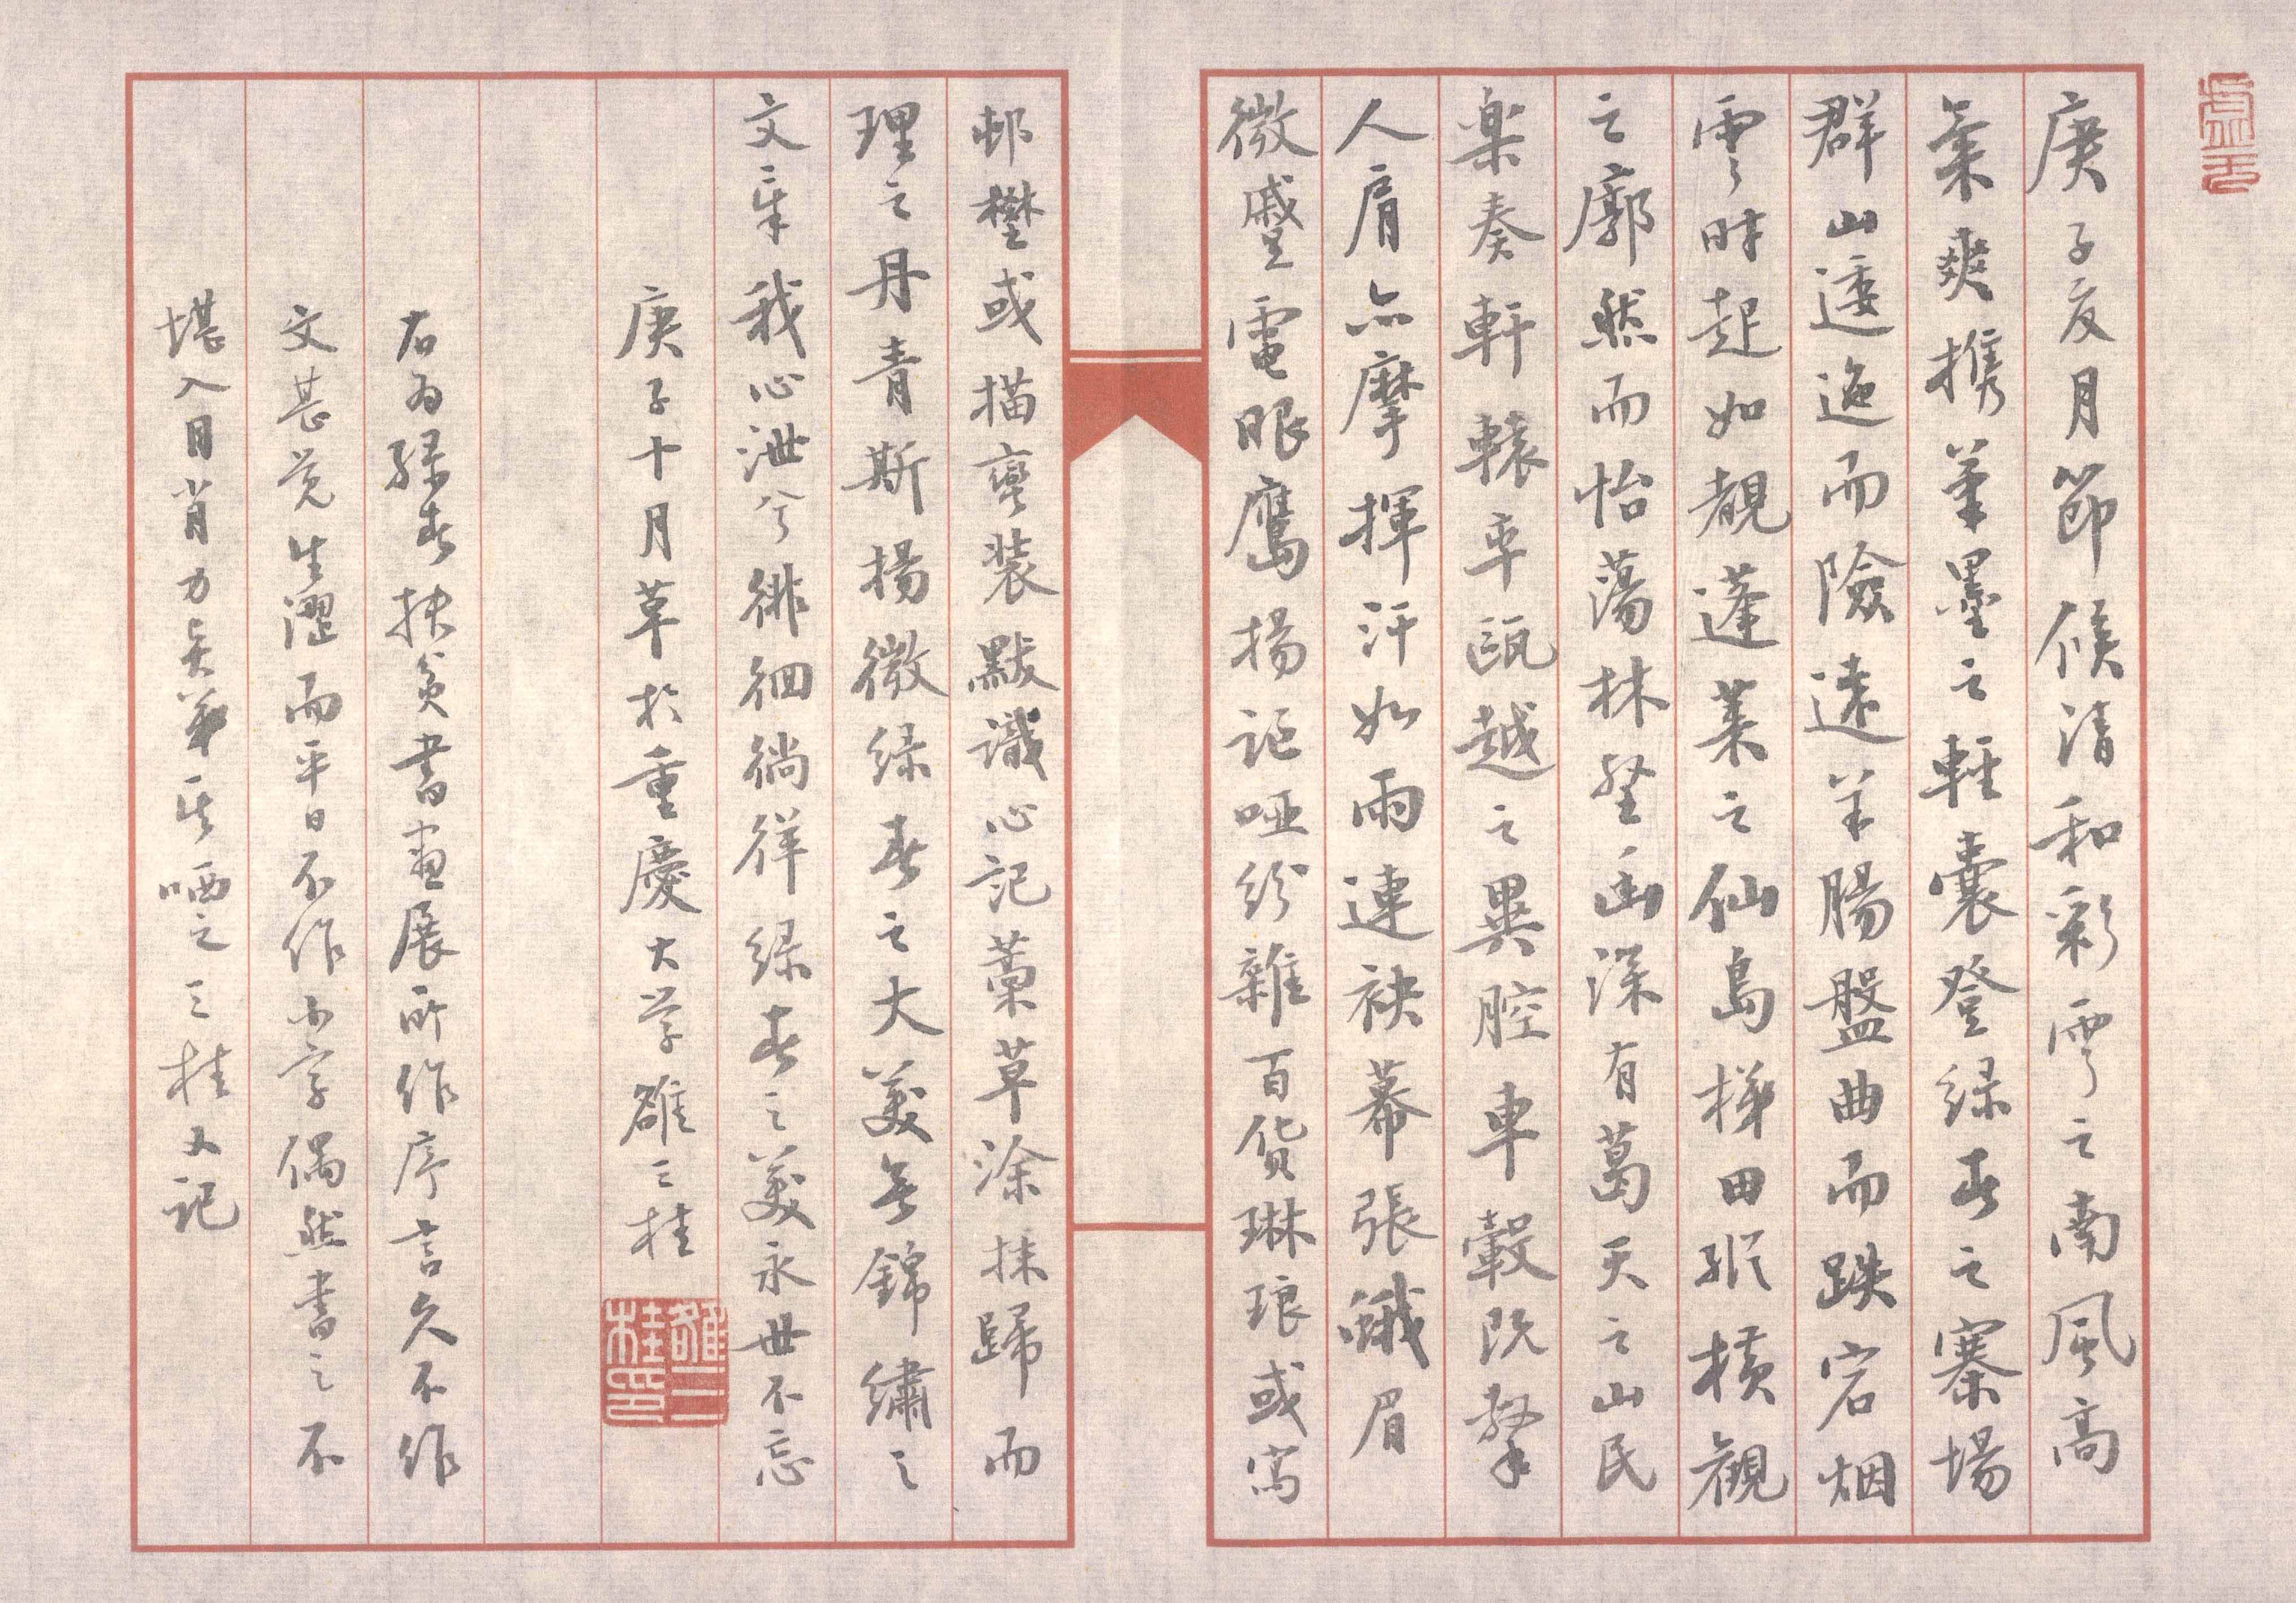 庚子亥月節候清和彩雲之南風高
氣爽攜筆墨之輕囊登绿春之寨場
群山逶迤而險遠羊腸盤曲而跌宕烟
雲时起如覩蓬莱之仙島梯田縱橫觀
之廓然而怡蕩林壑幽深有葛天之山民
楽奏軒轅平甌越之異腔車轂既擊
人肩亦摩揮汗如雨連袂幕張蛾眉
微蹙電眼鷹揚記哑纷雜百货琳琅或寫
邨㙷或描蛮装默識心記藁草涂抹歸而
理之丹青斯揚微绿春之大美無錦繡之
文章我心泄兮徘徊徜徉绿春之美永世不忘
庚子十月草於重慶大学雒三桂
雒三桂印
右为绿春扶贫書畫展所作序言久不作
文甚觉生澀而平日不作小字偶然書之不
堪入目肖力吴弟其哂之三桂又記